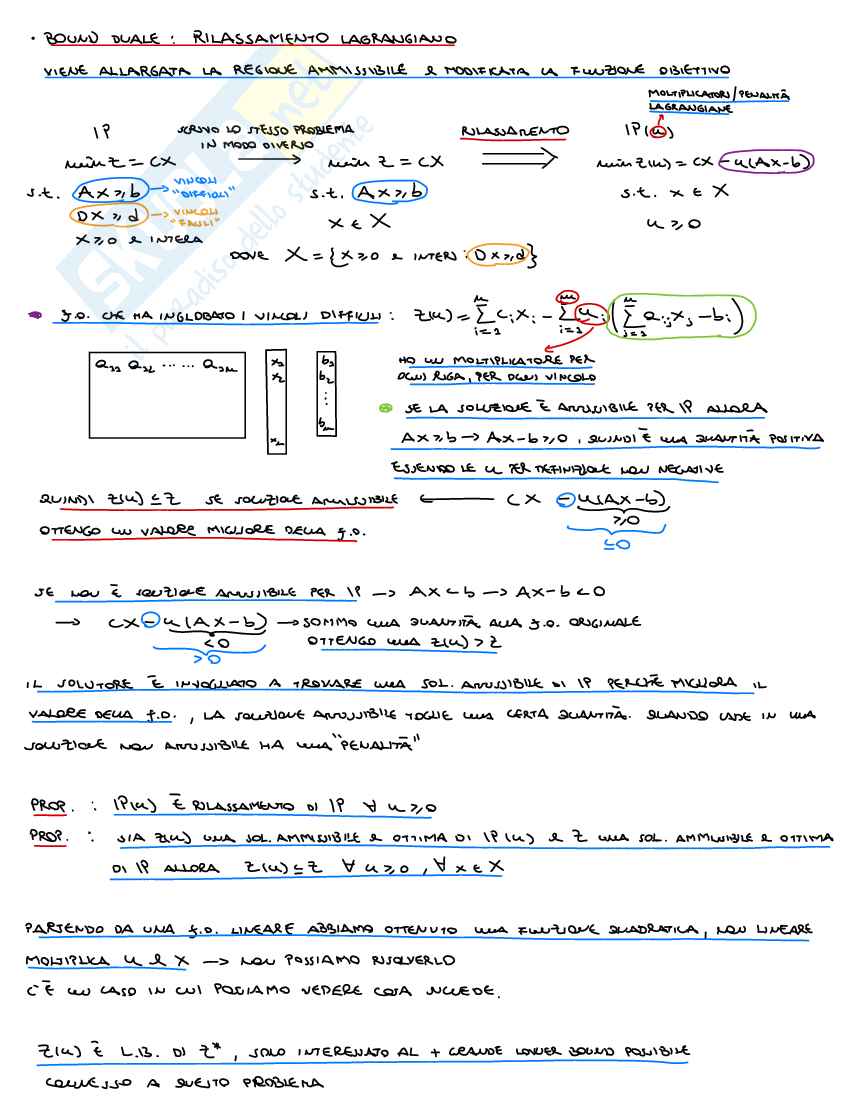 · BOUND DUALE : RILASSAMENTO LAGRANGIANO
VIENE ALLARGATA LA REGIONE AMMISSIBILE e MODIFICATA LA FUNZIONE OBIETTIVO
MOLTIPLICATORI/PENALITÀ
LAGRANGIANE
IP SCRIVO LO STESSO PROBLEMA RILASSAMENTO IP(u)
IN MODO DIVERSO
min z = cx → min z = cx ⟹ min z(u) = cx - u(Ax-b)
s.t. Ax ≥ b → VINCOLI "DIFFICILI" s.t. Ax ≥ b s.t. x ∈ X
Dx ≥ d → VINCOLI "FACILI" x ∈ X u ≥ 0
x ≥ 0 e INTERA
DOVE X = {x ≥ 0 e INTERI : Dx ≥ d}
f.O. CHE HA INGLOBATO I VINCOLI DIFFICILI : z(u) = Σ i=1 n c_i x_i - Σ i=1 m u_i ( Σ j=1 n a_ij x_j - b_i )
HO UN MOLTIPLICATORE PER
OGNI RIGA, PER OGNI VINCOLO
a11 a12 ... ... a1n
x1
x2
xn
b1
b2
⋮
bm
SE LA SOLUZIONE È AMMISSIBILE PER IP ALLORA
Ax ≥ b → Ax-b ≥ 0, QUINDI È UNA QUANTITÀ POSITIVA
ESSENDO LE u PER DEFINIZIONE NON NEGATIVE
QUINDI z(u) ≤ z SE SOLUZIONE AMMISSIBILE ← cx - u(Ax-b)
≥0
≤0
OTTENGO UN VALORE MIGLIORE DELLA f.O.
SE NON È SOLUZIONE AMMISSIBILE PER IP → Ax < b → Ax-b < 0
→ cx - u(Ax-b) → SOMMO UNA QUANTITÀ ALLA f.O. ORIGINALE
<0
>0
OTTENGO UNA z(u) > z
IL SOLUTORE È INVOGLIATO A TROVARE UNA SOL. AMMISSIBILE DI IP PERCHÈ MIGLIORA IL
VALORE DELLA f.O., LA SOLUZIONE AMMISSIBILE TOGLIE UNA CERTA QUANTITÀ. QUANDO CADE IN UNA
SOLUZIONE NON AMMISSIBILE HA UNA "PENALITÀ"
PROP. : IP(u) È RILASSAMENTO DI IP ∀ u ≥ 0
PROP. : SIA z(u) UNA SOL. AMMISSIBILE e OTTIMA DI IP(u) e z UNA SOL. AMMISSIBILE e OTTIMA
DI IP ALLORA z(u) ≤ z ∀ u ≥ 0, ∀ x ∈ X
PARTENDO DA UNA f.O. LINEARE ABBIAMO OTTENUTO UNA FUNZIONE QUADRATICA, NON LINEARE
MOLTIPLICA u e x → NON POSSIAMO RISOLVERLO
C'È UN CASO IN CUI POSSIAMO VEDERE COSA SUCCEDE.
z(u) È L.B. DI z*, SOLO INTERESSATO AL + GRANDE LOWER BOUND POSSIBILE
CONNESSO A QUESTO PROBLEMA
skuola.net
il paradiso dello studente